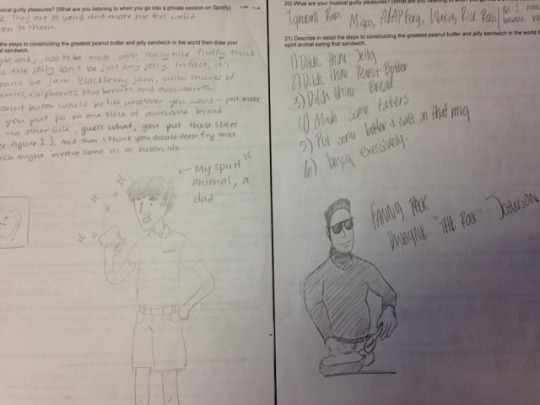 sical guilty pleasures? (What are you listening to when you go into a private session on Spotify)
They are so weird and make me feel weird
en to them.
the steps to constructing the greatest peanut butter and jelly sandwich in the world then draw your
sandwich.
pb and j. has to be made with really nice fluffy thick
d the jelly can't be just any jelly. In fact, it's
onna be jam. Blackberry jam. With chunks of
erries, raspberries, blueberries, and
anut butter would be like whatever you want - just make
you put pb on one slice of awesome bread
the other side, guess what, you put those slices
e figure 1). And then I think you should deep fry that
ich might involve some oil or butter, idk
My spirit
animal, a
dad
20) What are your musical guilty pleasures? (What are you listening to when you go into a private session on
Migos, A$AP Ferg, Waka, Rick Ross
21) Describe in detail the steps to constructing the greatest peanut butter and jelly sandwich in the world
spirit animal eating that sandwich.
1) Ditch thine Jelly
2) Ditch thine Peanut Butter
3) Ditch thine Bread
4) Mash some taters
5) Put some butter & salt in that mug
6) Enjoy excessively.
FANNY PACK
DWAYNE "THE ROCK" JOHNSON